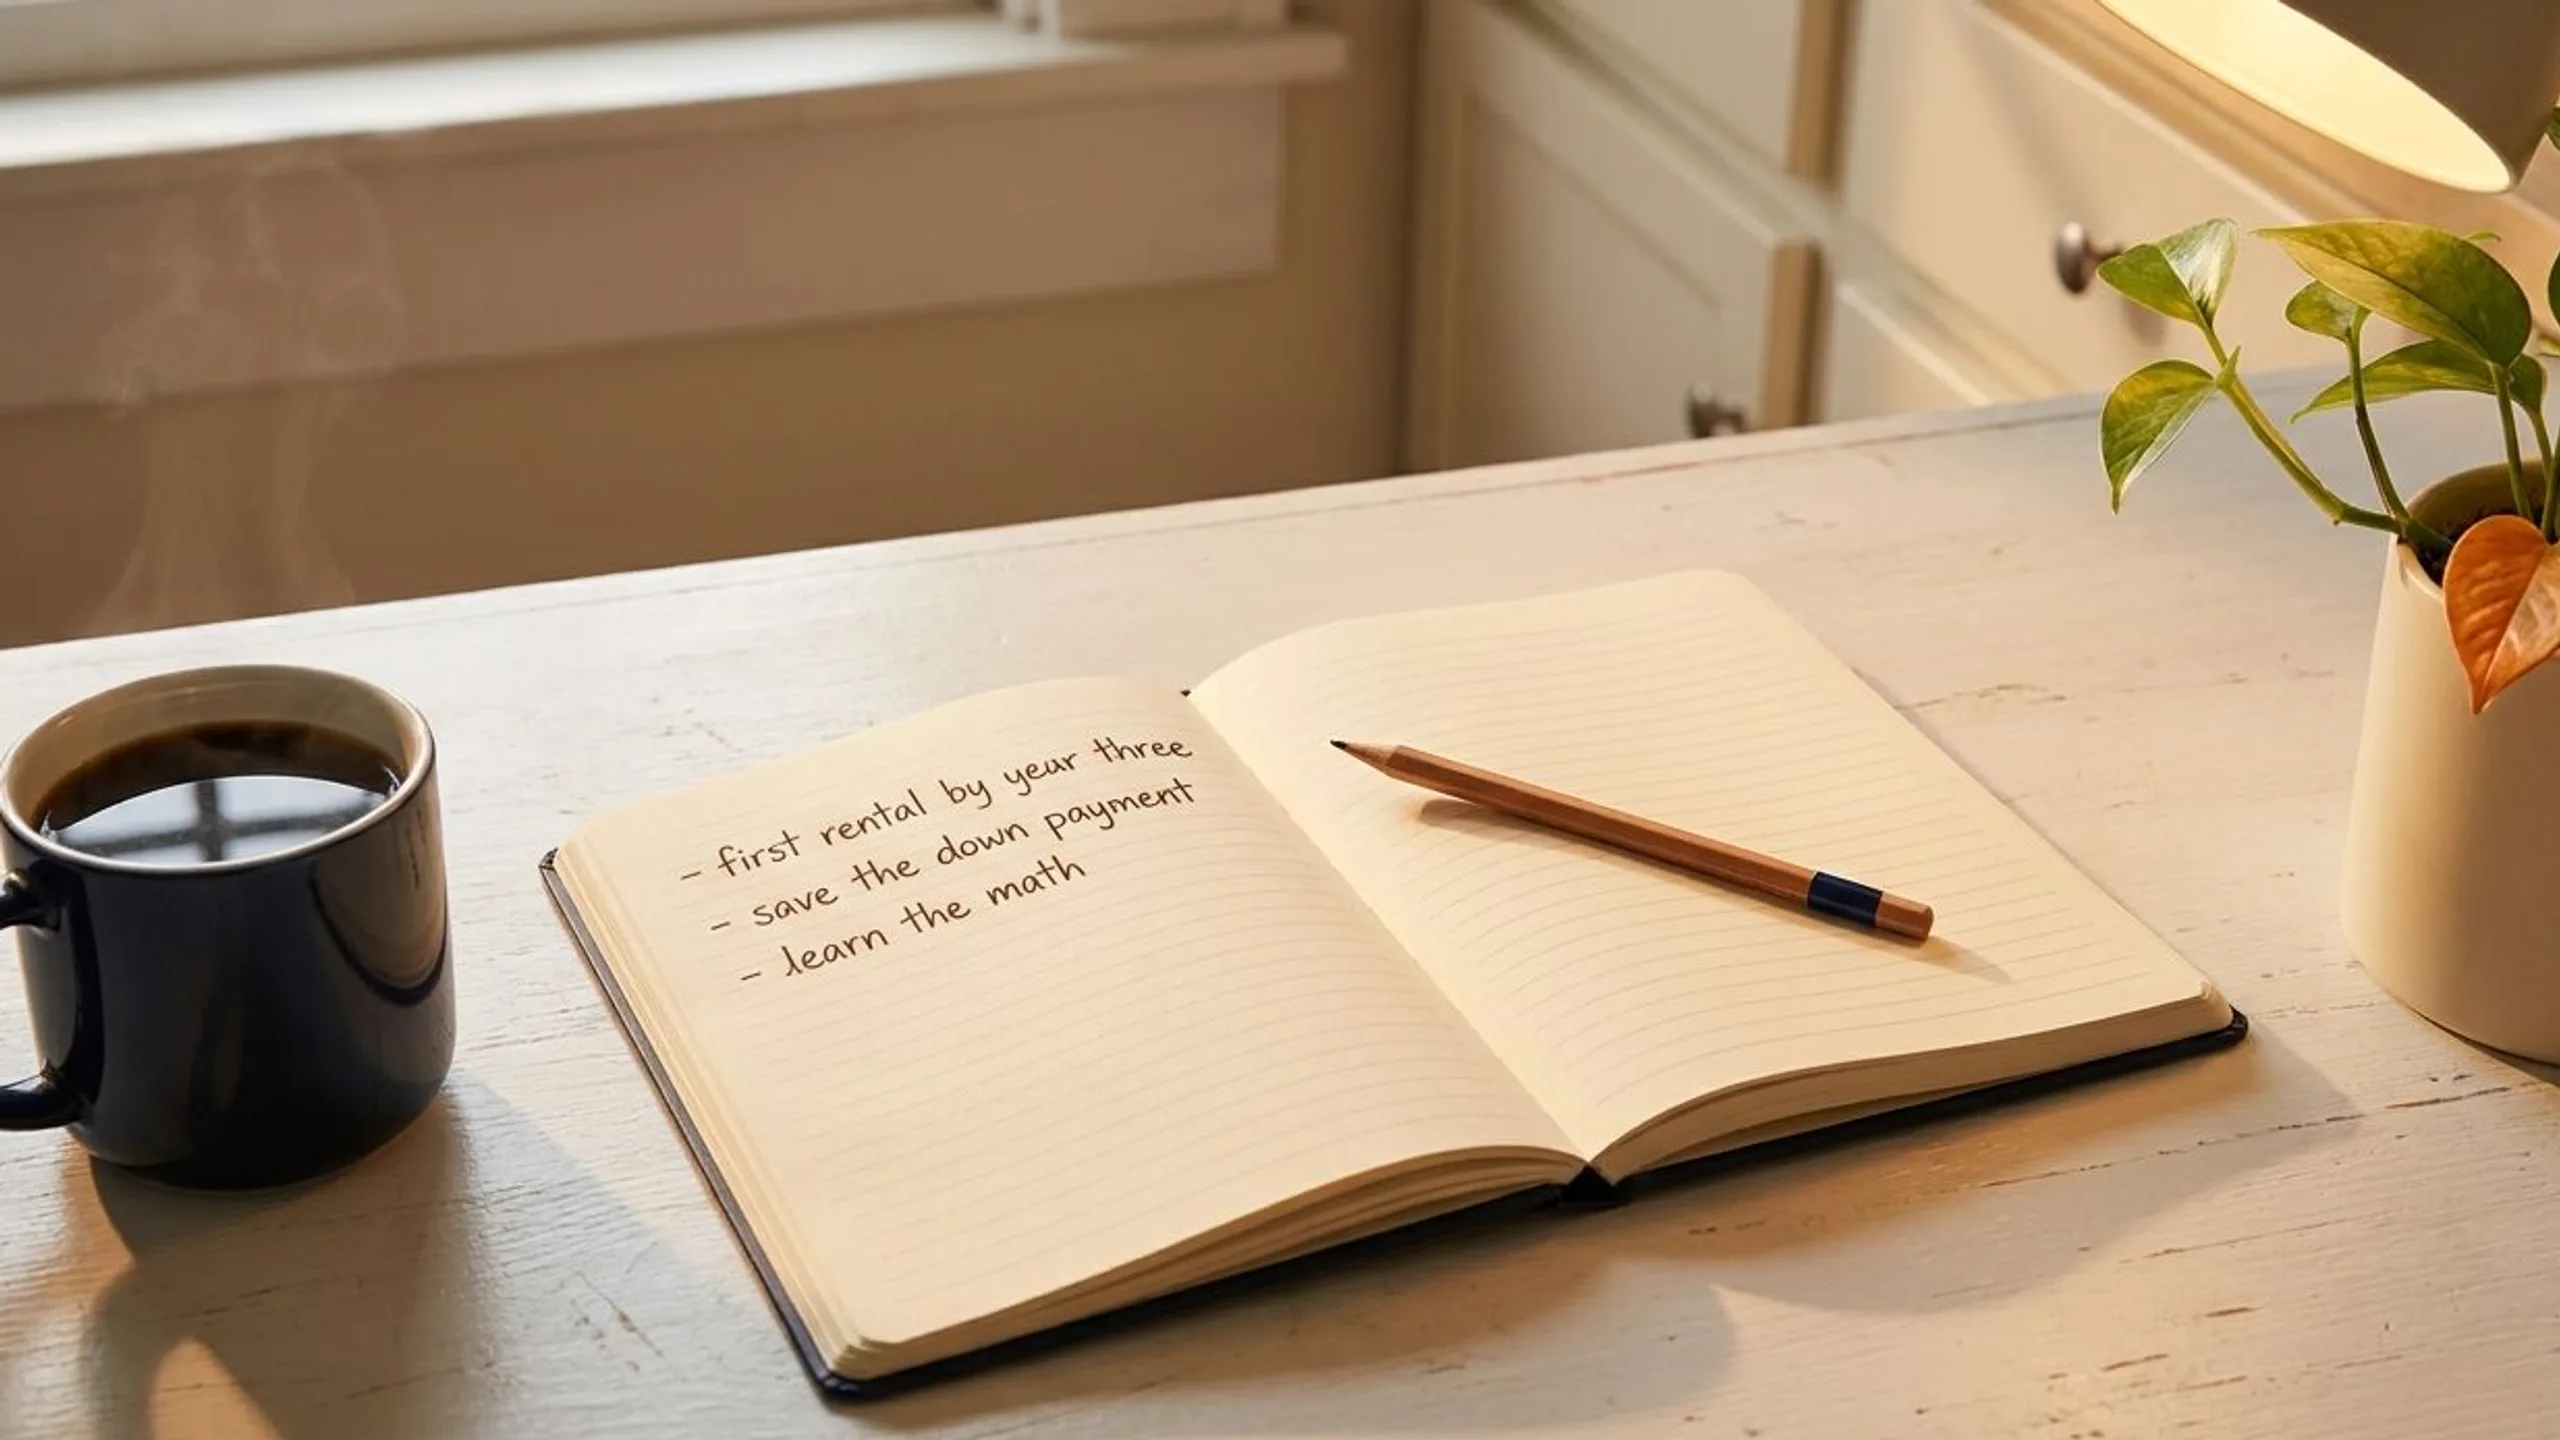 - first rental by year three
- save the down payment
- learn the math